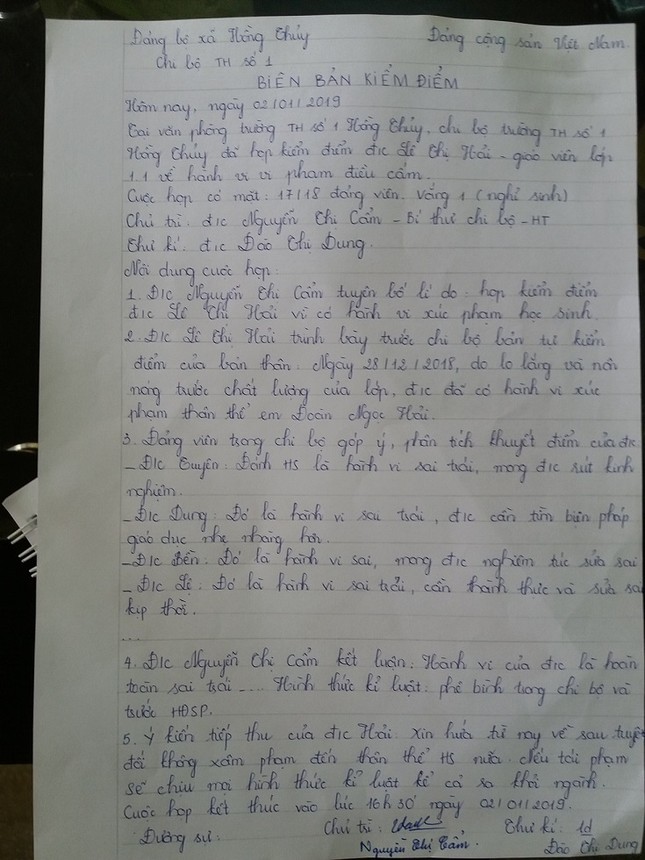 Đảng bộ xã Hồng Thủy Đảng cộng sản Việt Nam
Chi bộ TH số 1
BIÊN BẢN KIỂM ĐIỂM
Hôm nay, ngày 02/01/2019
Tại văn phòng trường TH số 1 Hồng Thủy, chi bộ trường TH số 1
Hồng Thủy đã họp kiểm điểm đ/c Lê Thị Hải - giáo viên lớp
1.1 về hành vi vi phạm điều cấm.
Cuộc họp có mặt: 17/18 đảng viên. Vắng 1 (nghỉ sinh)
Chủ trì: đ/c Nguyễn Thị Cẩm - Bí thư chi bộ - HT
Thư kí: đ/c Đào Thị Dung.
Nội dung cuộc họp:
1. Đ/c Nguyễn Thị Cẩm tuyên bố lí do: họp kiểm điểm
đ/c Lê Thị Hải vì có hành vi xúc phạm học sinh.
2. Đ/c Lê Thị Hải trình bày trước chi bộ bản tự kiểm
điểm của bản thân: Ngày 28/12/2018, do lo lắng và nôn
nóng trước chất lượng của lớp, đ/c đã có hành vi xúc
phạm thân thể em Đoàn Ngọc Hải.
3. Đảng viên trong chi bộ góp ý, phân tích khuyết điểm của đ/c
- Đ/c Tuyên: Đánh HS là hành vi sai trái, mong đ/c rút kinh
nghiệm.
- Đ/c Dung: Đó là hành vi sai trái, đ/c cần tìm biện pháp
giáo dục nhẹ nhàng hơn.
- Đ/c Bền: Đó là hành vi sai, mong đ/c nghiêm túc sửa sai
- Đ/c Lê: Đó là hành vi sai trái, cần thành thực và sửa sai
kịp thời.
...
4. Đ/c Nguyễn Thị Cẩm kết luận: Hành vi của đ/c là hoàn
toàn sai trái .... Hình thức kỉ luật: phê bình trong chi bộ và
trước HĐSP.
5. Ý kiến tiếp thu của đ/c Hải: Xin hứa từ nay về sau tuyệt
đối không xâm phạm đến thân thể HS nữa. Nếu tái phạm
sẽ chịu mọi hình thức kỉ luật kể cả sa khỏi ngành.
Cuộc họp kết thúc vào lúc 16h30' ngày 02/01/2019.
Đương sự: Chủ trì: Thư kí:
Nguyễn Thị Cẩm. Đào Thị Dung